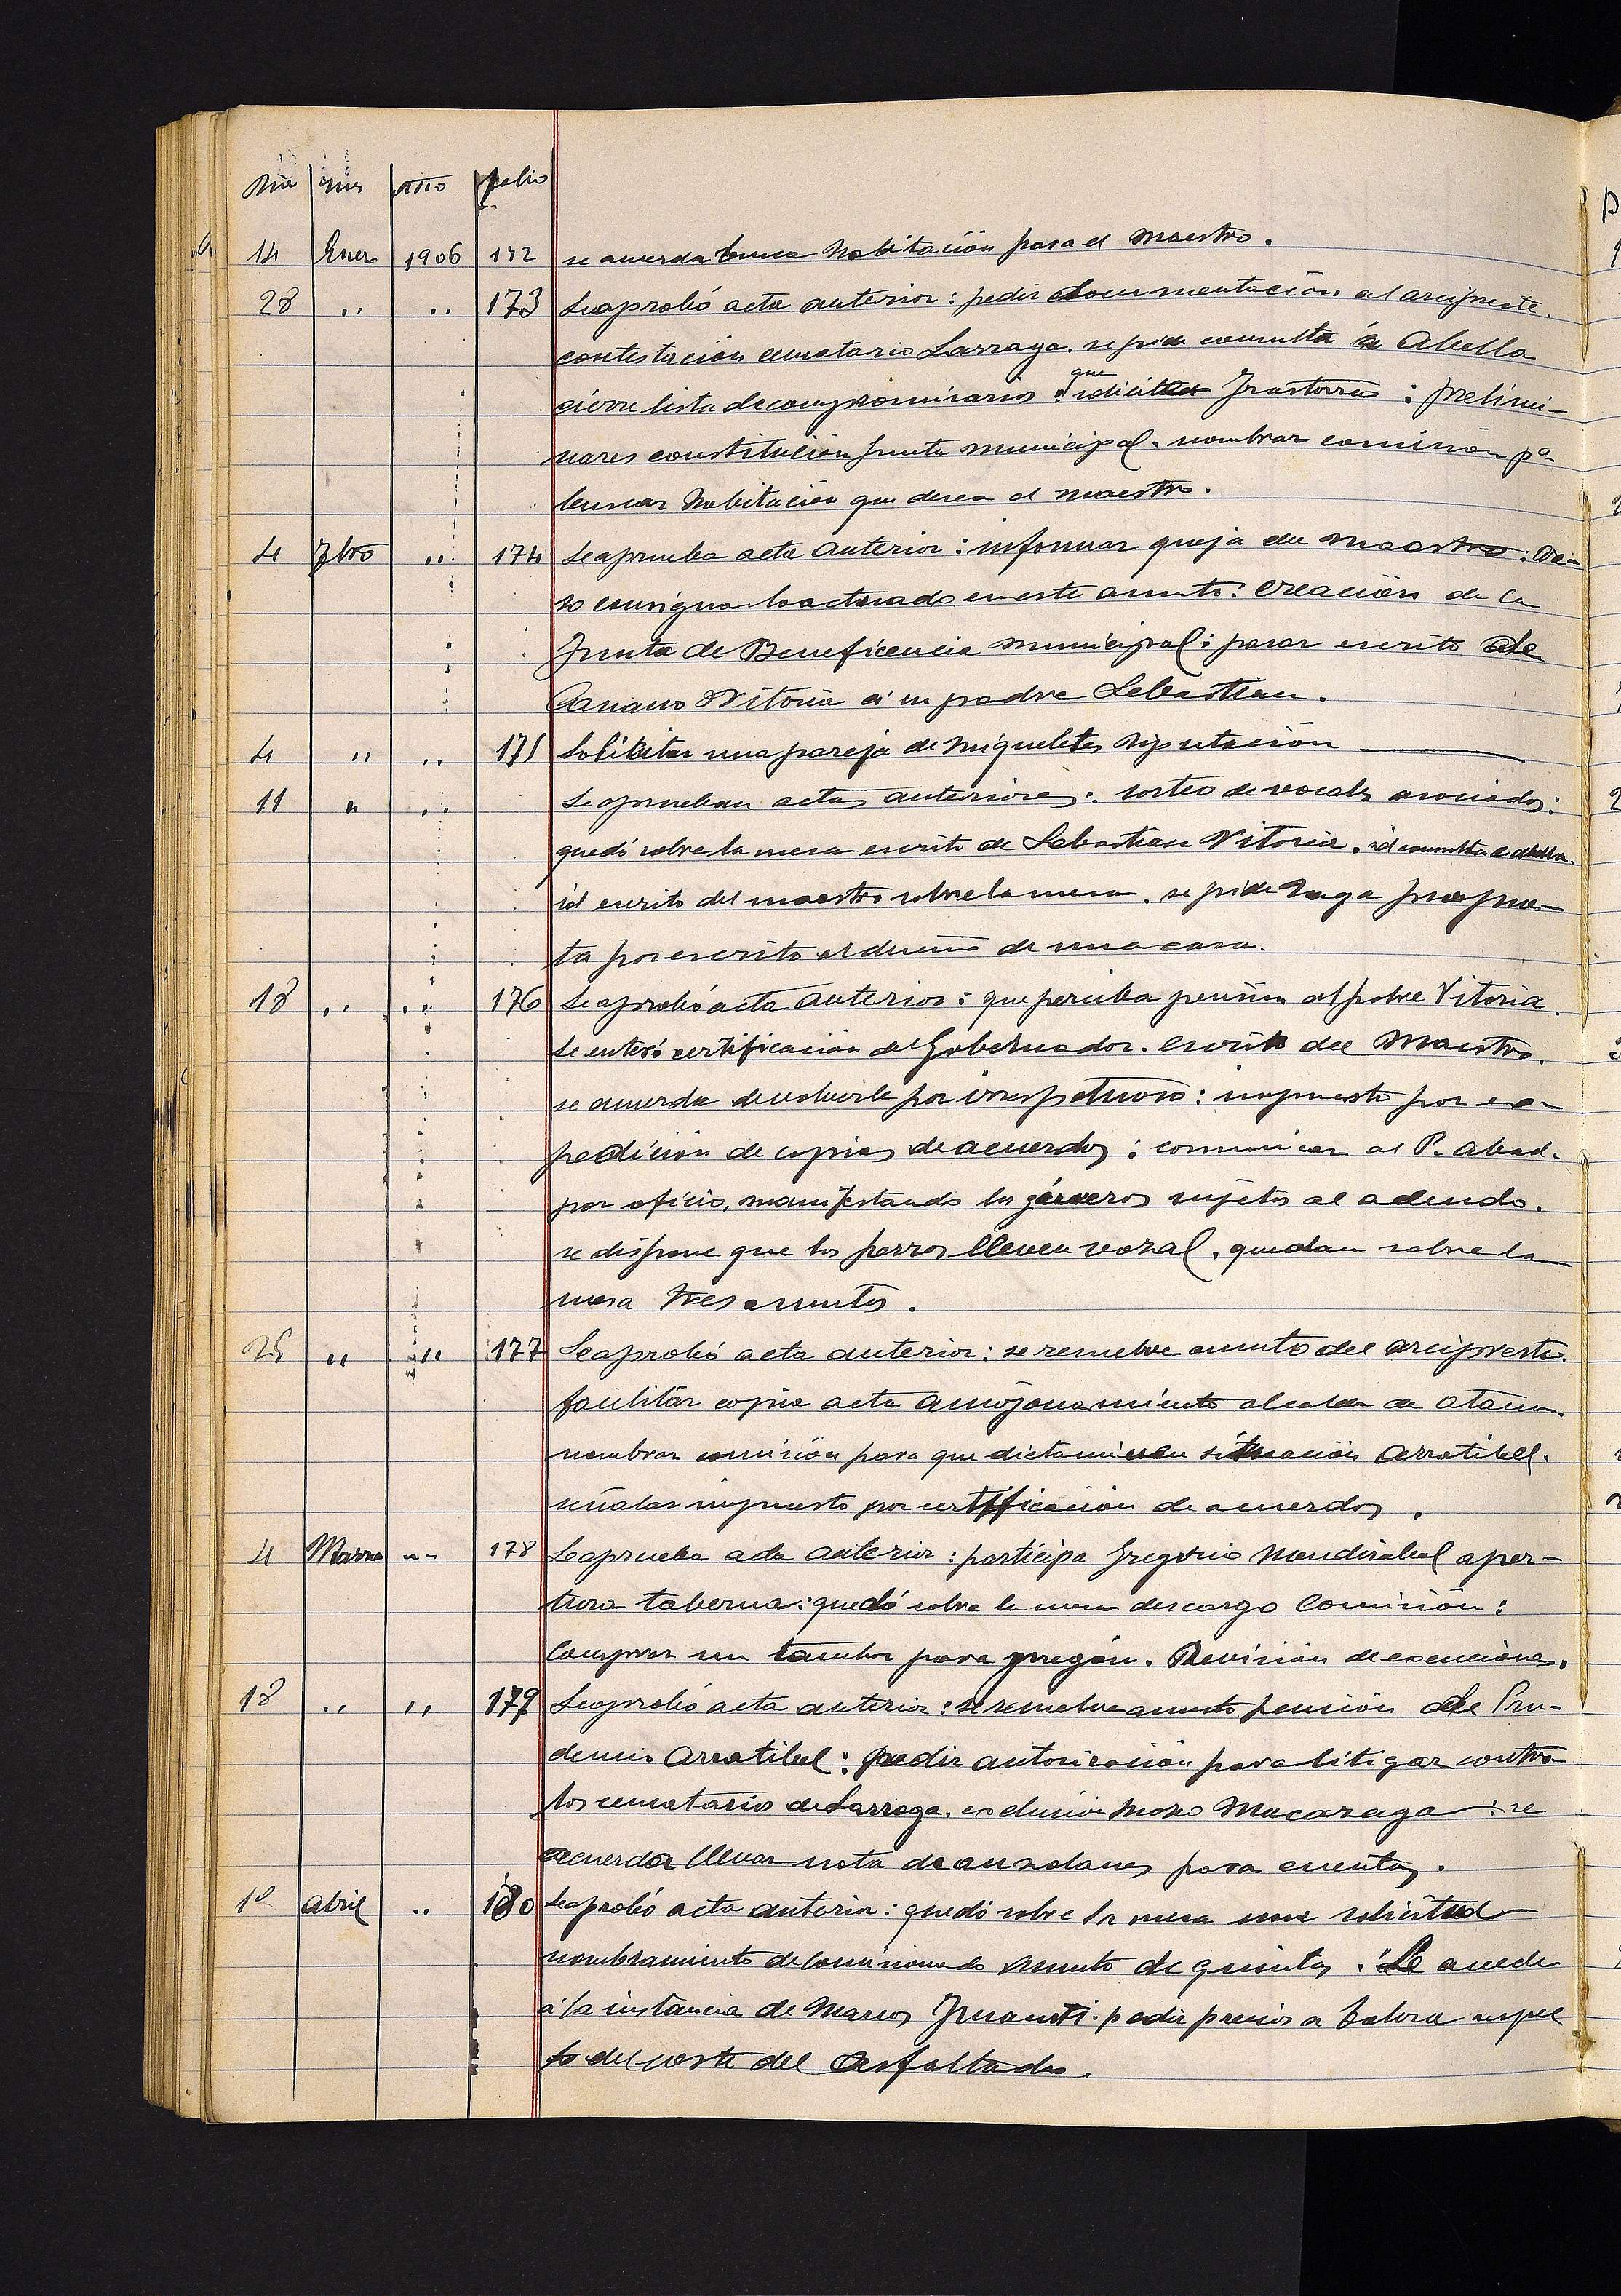 Dia mes año folio
14 Enero 1906 172 se acuerda busca habitación para el maestro.
28 " " 173 Se aprobó acta anterior: pedir documentación al arcipreste.
contestación censatario Larraga. se pida consulta á Abella
cierre lista de compromisarios: que solicite : prelimi-
nares constitución junta municipal. nombrar comision pª
buscar habitación que desea el maestro.
4 Fbro " 174 Se aprueba acta anterior: informar queja del maestro:
se consigna lo actuado en este asunto: creación de la
Junta de Beneficencia municipal: pasar escrito de
Vitoria á su padre Sebastian.
4 " " 175 Solicitar una pareja de miqueletes Diputación
11 " " Se aprueban actas anteriores: sorteo de vocales asociados:
quedó sobre la mesa escrito de Sebastian Vitoria. id consulta á Abella.
id escrito del maestro sobre la mesa. se pide haga propues-
ta por escrito al dueño de una casa.
18 " " 176 Se aprobó acta anterior: que perciba pensión al pobre Vitoria.
Se enteró certificación del Gobernador. Escrito del Maestro.
se acuerda devolverle por irrespetuoso: impuesto por ex-
pedición de copias de acuerdos: comunicar al P. Abad.
por oficio, manifestando los géneros sujetos al adeudo.
se dispone que los perros lleven vozal. quedan sobre la
mesa tres asuntos.
25 " " 177 Se aprobó acta anterior: se resuelve asunto del arcipreste.
facilitar copia acta amojonamiento alcalde de Ataun.
nombrar comisión para que dictaminen situación Arratibel.
señalar impuesto por certificación de acuerdos.
4 Marzo " 178 Se aprueba acta anterior: participa Gregorio Mendizabal aper-
tura taberna: quedó sobre la mesa descargo Comisión:
Comprar un tambor para pregón. Revisión de exenciones.
18 " " 179 Se aprobó acta anterior: se resuelve asunto pensión de Pru-
dencio Arratibel: pedir autorización para litigar contra
los censatarios de Larraga. exclusion mozo Mucazaga: se
acuerda llevar nota de para cuentas.
1º abril " 180 Se aprobó acta anterior: quedó sobre la mesa una solicitud
nombramiento de comisionado asunto de quintas. Se accede
á la instancia de Marcos. pedir precios a respec
to del coste del asfaltado.